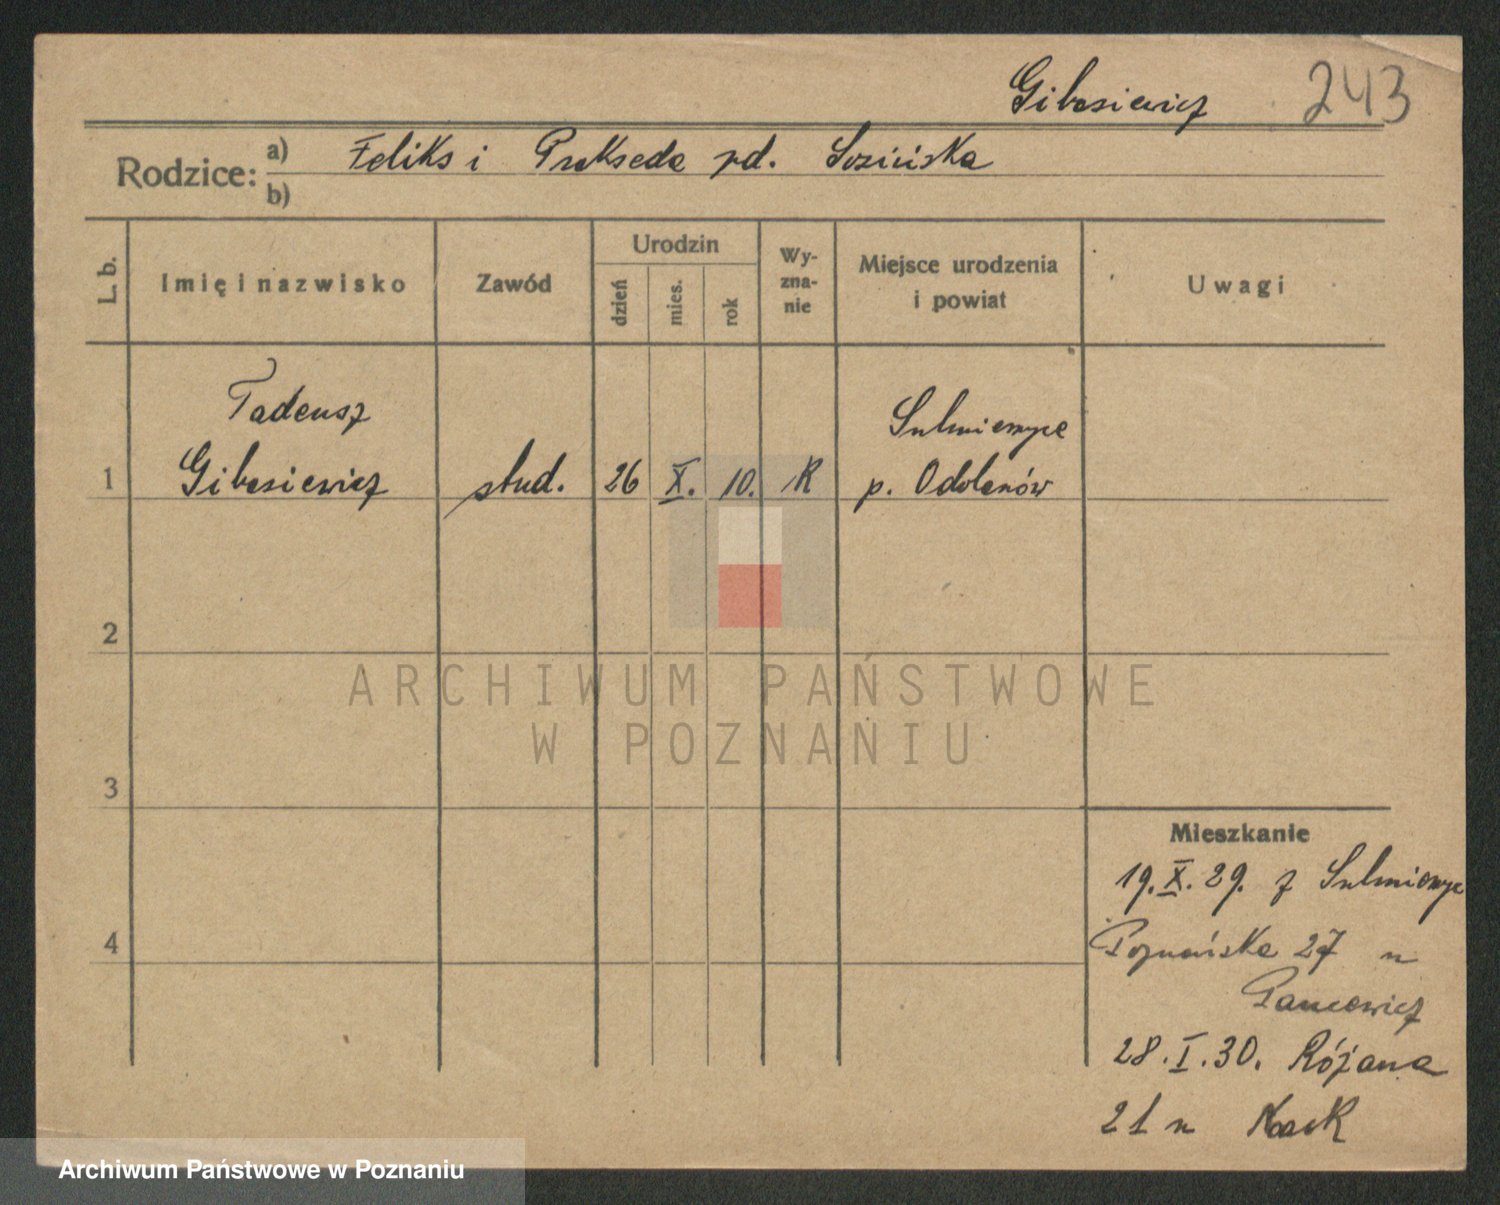 Gibasiewicz 243
Rodzice: a) Feliks i Prakseda rd. Sozińska
b)
L. b. Imię i nazwisko Zawód Urodzin dzień mies. rok Wy-zna-nie Miejsce urodzenia i powiat Uwagi
Tadeusz Sulmierzyce
1 Gibasiewicz stud. 26 X. 10. R p. Odolanów
2
ARCHIWUM PAŃSTWOWE
W POZNANIU
3
Mieszkanie
19.X.29. z Sulmierzyc
4
Poznańska 27 u
28.I.30. Różana
21 u
Archiwum Państwowe w Poznaniu